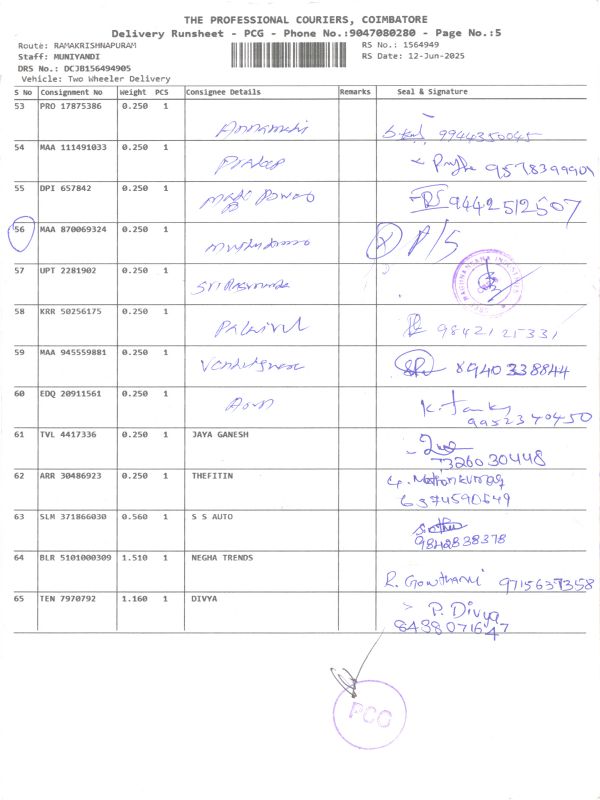 THE PROFESSIONAL COURIERS, COIMBATORE
Delivery Runsheet - PCG - Phone No.:9047080280 - Page No.:5
Route: RAMAKRISHNAPURAM RS No.: 1564949
Staff: MUNIYANDI RS Date: 12-Jun-2025
DRS No.: DCJB156494905
Vehicle: Two Wheeler Delivery
S No Consignment No Weight PCS Consignee Details Remarks Seal & Signature
53 PRO 17875386 0.250 1
9944350045
54 MAA 111491033 0.250 1
Pradeep 9578399901
55 DPI 657842 0.250 1
9442512507
56 MAA 870069324 0.250 1
P/S
57 UPT 2281902 0.250 1
58 KRR 50256175 0.250 1
9842121331
59 MAA 945559881 0.250 1
8940338844
60 EDQ 20911561 0.250 1
9952340450
61 TVL 4417336 0.250 1 JAYA GANESH
7326030448
62 ARR 30486923 0.250 1 THEFITIN
6374590649
63 SLM 371866030 0.560 1 S S AUTO
9842838378
64 BLR 5101000309 1.510 1 NEGHA TRENDS
R. Gowthami 9715637358
65 TEN 7970792 1.160 1 DIVYA
P. Divya
8438071647
PCG